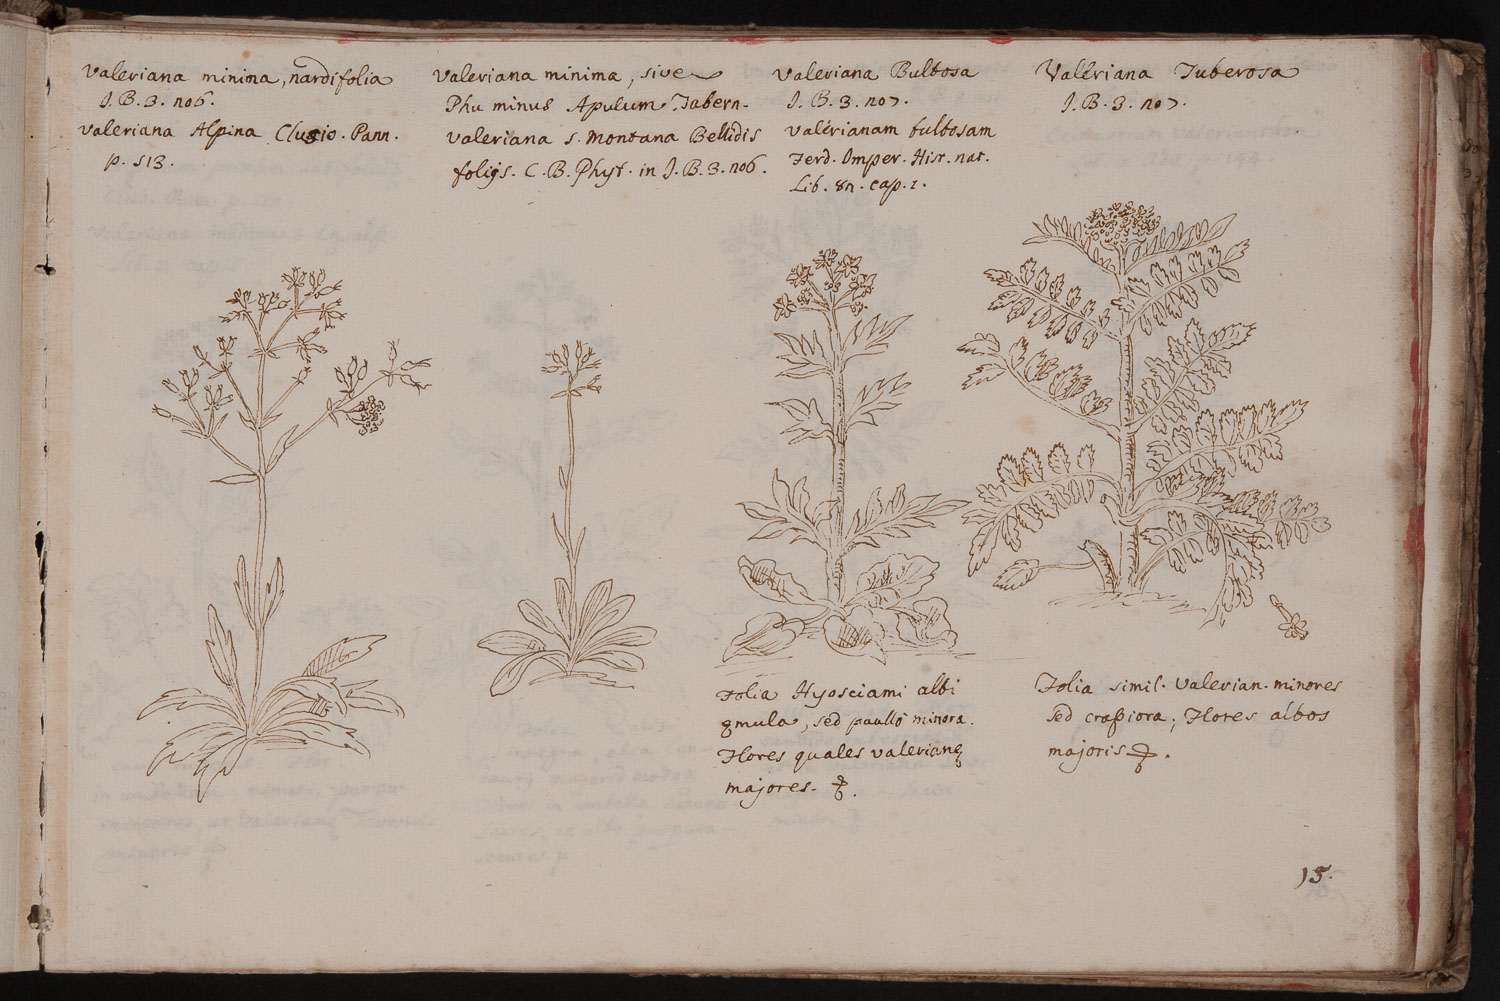 Valeriana minima, nardifolia
J. B. 3. no6.
Valeriana Alpina Clusio. Pann.
p. 513.
Valeriana minima, sive
Phu minus Apulum Tabern.
Valeriana s. Montana Bellidis
folijs. C. B. Phyt. in J. B. 3. no6.
Valeriana Bulbosa
J. B. 3. no7.
Valerianam bulbosam
Ferd. Imper. Hist. nat.
Lib. 8n. cap. 1.
Valeriana Tuberosa
J. B. 3. no7.
Folia Hyosciami albi
ęmula, sed paullò minora.
Flores quales valerianę
majores.
Folia simil. Valerian. minores
sed craßiora; Flores albos
majoris
15.